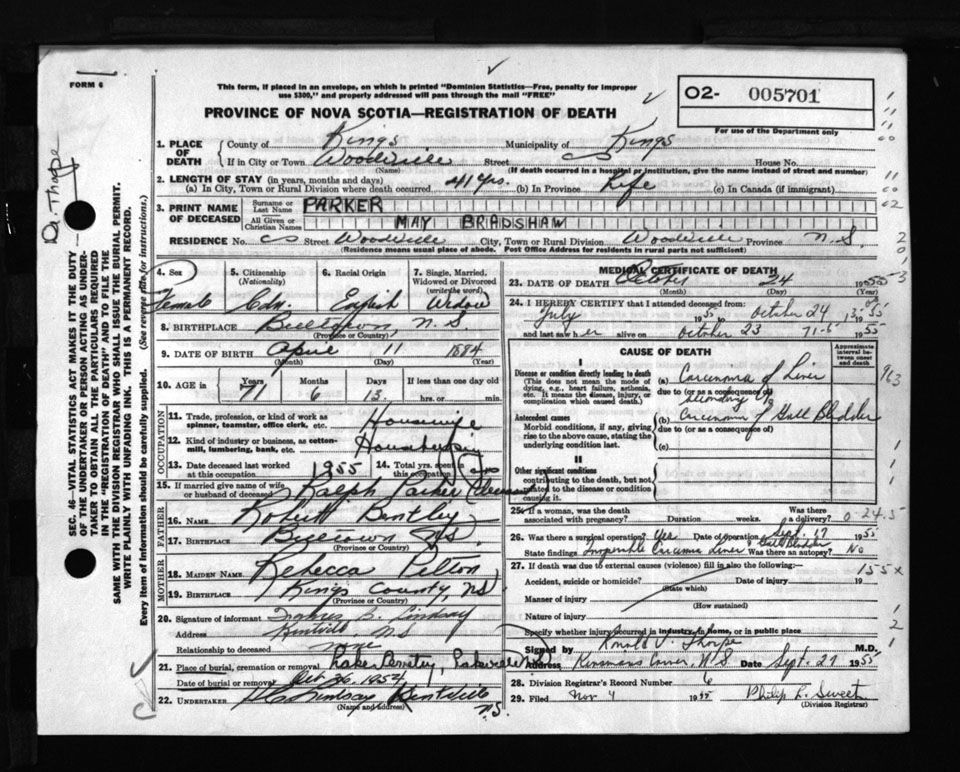 FORM 6
This form, if placed in an envelope, on which is printed "Dominion Statistics—Free, penalty for improper
use $300," and properly addressed will pass through the mail "FREE"
PROVINCE OF NOVA SCOTIA—REGISTRATION OF DEATH
O2- 005701
For use of the Department only
Dr. Thorpe
SEC. 46—VITAL STATISTICS ACT MAKES IT THE DUTY
OF THE UNDERTAKER OR PERSON ACTING AS UNDER-
TAKER TO OBTAIN ALL THE PARTICULARS REQUIRED
IN THE "REGISTRATION OF DEATH" AND TO FILE THE
SAME WITH THE DIVISION REGISTRAR WHO SHALL ISSUE THE BURIAL PERMIT.
WRITE PLAINLY WITH UNFADING INK. THIS IS A PERMANENT RECORD.
Every item of information should be carefully supplied. (See reverse side for instructions.)
1. PLACE OF DEATH County of Kings Municipality of Kings
If in City or Town Woodville Street House No.
(Name) (If death occurred in a hospital or institution, give the name instead of street and number)
2. LENGTH OF STAY (in years, months and days)
(a) In City, Town or Rural Division where death occurred 41 yrs. (b) In Province Life (c) In Canada (if immigrant)
3. PRINT NAME OF DECEASED Surname or Last Name PARKER
All Given or Christian Names MAY BRADSHAW
RESIDENCE No. Street Woodville City, Town or Rural Division Woodville Province N.S.
(Residence means usual place of abode. Post Office Address for residents in rural parts not sufficient)
4. Sex Female
5. Citizenship (Nationality) Cdn.
6. Racial Origin English
7. Single, Married, Widowed or Divorced (write the word) Widow
8. BIRTHPLACE N.S.
(Province or Country)
9. DATE OF BIRTH April 11 1884
(Month) (Day) (Year)
10. AGE in Years 71 Months 6 Days 13 If less than one day old hrs. or min.
OCCUPATION
11. Trade, profession, or kind of work as spinner, teamster, office clerk, etc. Housewife
12. Kind of industry or business, as cotton-mill, lumbering, bank, etc. Housekeeping
13. Date deceased last worked at this occupation 1955 14. Total yrs. spent in this occupation
15. If married give name of wife or husband of deceased Ralph Parker
FATHER
16. NAME Robert Bentley
17. BIRTHPLACE N.S.
(Province or Country)
MOTHER
18. MAIDEN NAME Rebecca Pelton
19. BIRTHPLACE Kings County, NS
(Province or Country)
20. Signature of informant B. Lindsay
Address Kentville N.S
Relationship to deceased none
21. Place of burial, cremation or removal
Date of burial or removal Oct 26, 1954
22. UNDERTAKER Lindsay Kentville N.S.
(Name and Address)
MEDICAL CERTIFICATE OF DEATH
23. DATE OF DEATH October 24 1955
(Month) (Day)
24. I HEREBY CERTIFY that I attended deceased from
July 1955 to October 24 1955
and last saw her alive on October 23 71-6 1955
CAUSE OF DEATH
Approximate interval between onset and death
I
Disease or condition directly leading to death
(This does not mean the mode of dying, e.g., heart failure, asthenia, etc. It means the disease, injury, or complication which caused death.)
(a) Carcinoma of Liver
due to (or as a consequence of) secondary to
Antecedent causes
Morbid conditions, if any, giving rise to the above cause, stating the underlying condition last.
(b) Carcinoma of Gall Bladder
due to (or as a consequence of)
(c)
II
Other significant conditions
contributing to the death, but not related to the disease or condition causing it.
25. If a woman, was the death associated with pregnancy? Duration weeks. Was there a delivery?
26. Was there a surgical operation? Yes Date of operation Sept. 27 1955
State findings Inoperable Carcinoma Liver Gall Bladder Was there an autopsy? No
27. If death was due to external causes (violence) fill in also the following:—
Accident, suicide or homicide? Date of injury 19
(State which)
Manner of injury
(How sustained)
Nature of injury
Specify whether injury occurred in industry, in home, or in public place
Signed by Ronald V. Thorpe M.D.
Address Kinsmans Corner, N.S Date Sept. 27 1955
28. Division Registrar's Record Number 6
29. Filed Nov 4 1955 Philip L. Sweet
(Division Registrar)
963
0-24.5
155x